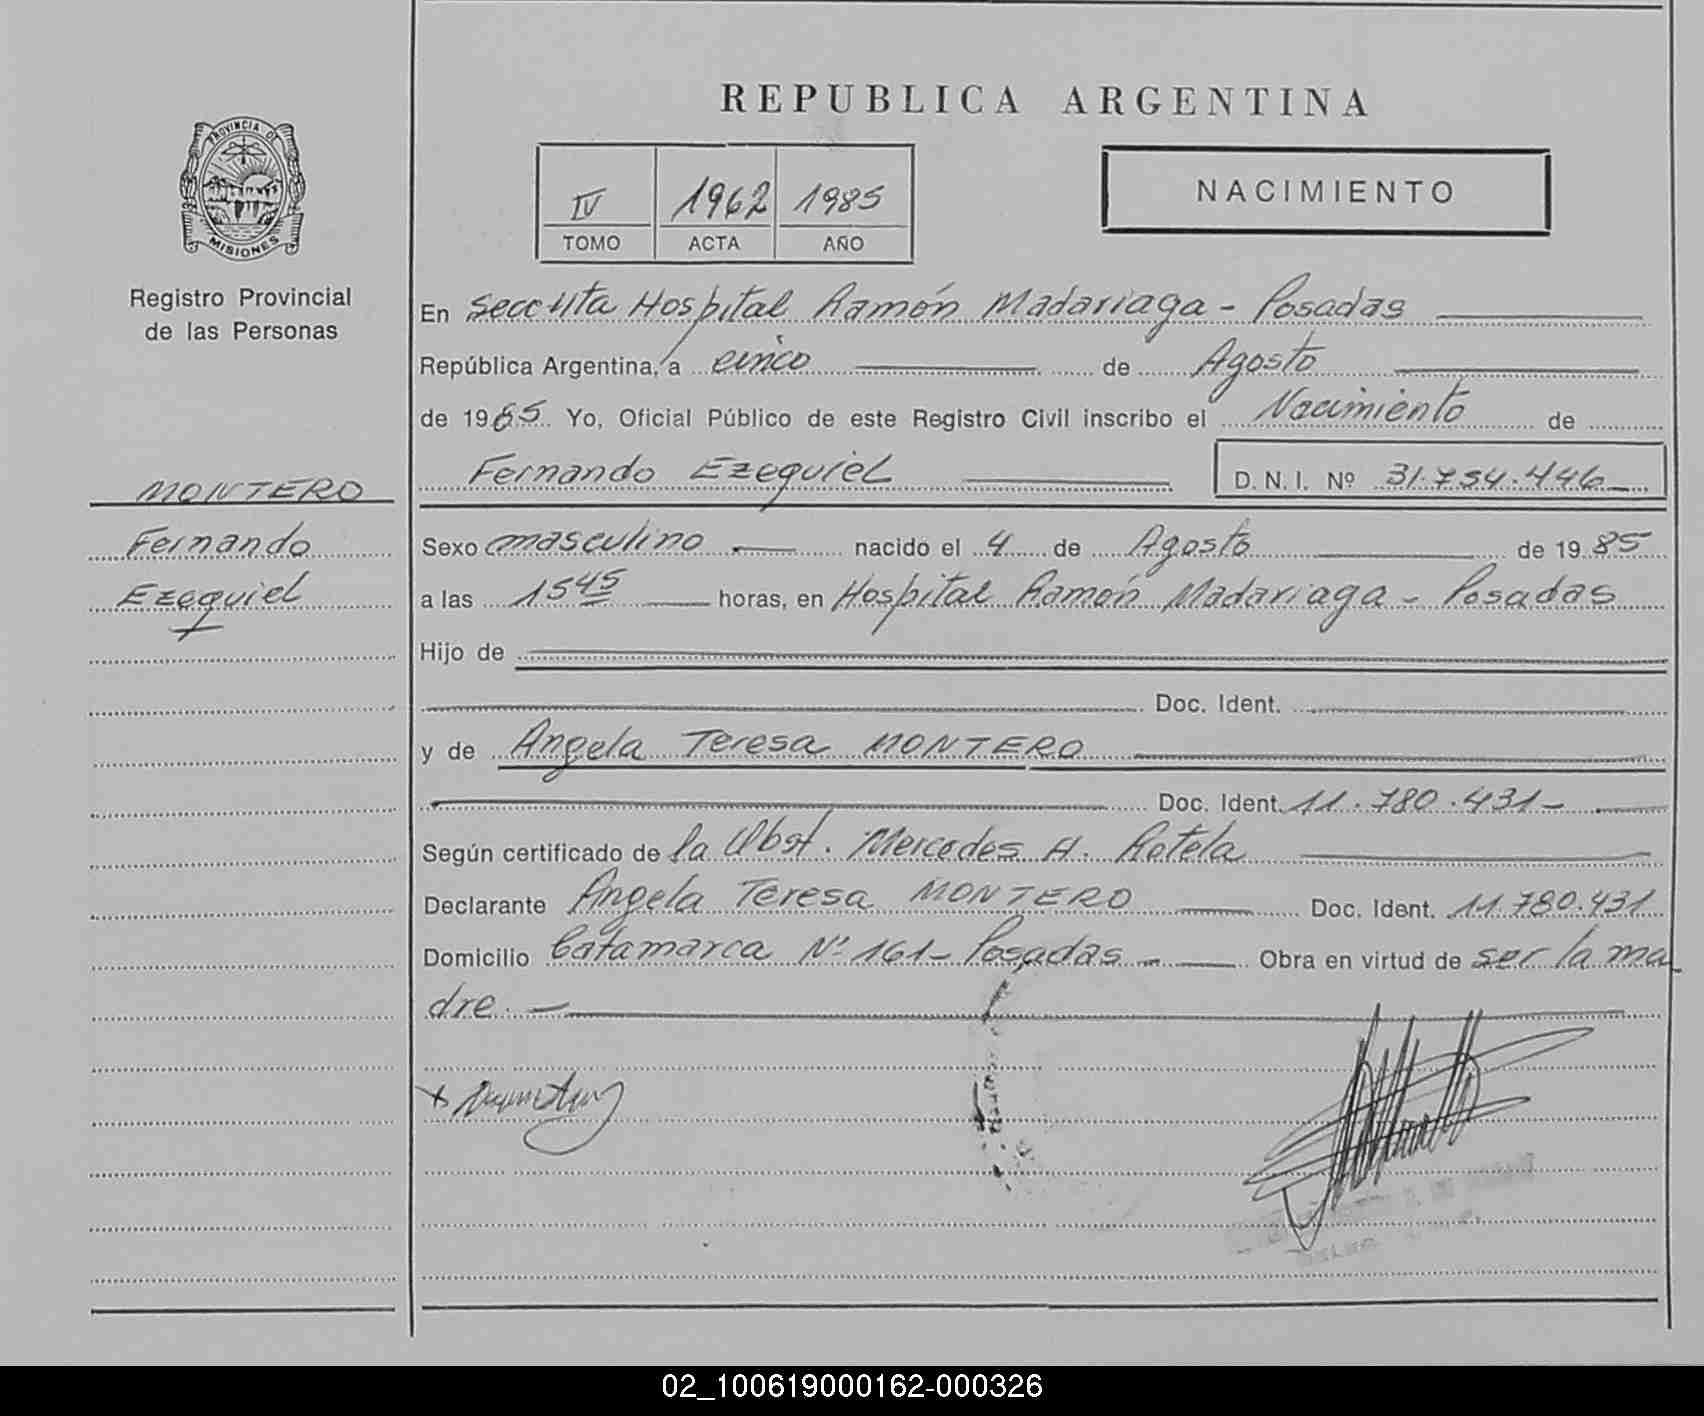 REPUBLICA ARGENTINA
PROVINCIA DE
MISIONES
Registro Provincial
de las Personas
IV 1962 1985
TOMO ACTA AÑO
NACIMIENTO
En Hospital Ramón Madariaga - Posadas
República Argentina, a cinco de Agosto
de 1985. Yo, Oficial Público de este Registro Civil inscribo el Nacimiento de
Fernando Ezequiel D.N.I. Nº 31.754.446
MONTERO
Fernando
Ezequiel
Sexo masculino nacido el 4 de Agosto de 1985
a las 15 45 horas, en Hospital Ramón Madariaga - Posadas
Hijo de
Doc. Ident.
y de Angela Teresa MONTERO
Doc. Ident. 11.780.431-
Según certificado de la Obst. Mercedes H. Rotela
Declarante Angela Teresa MONTERO Doc. Ident. 11.780.431
Domicilio Catamarca Nº 161- Posadas - Obra en virtud de ser la ma
dre. -
02_100619000162-000326